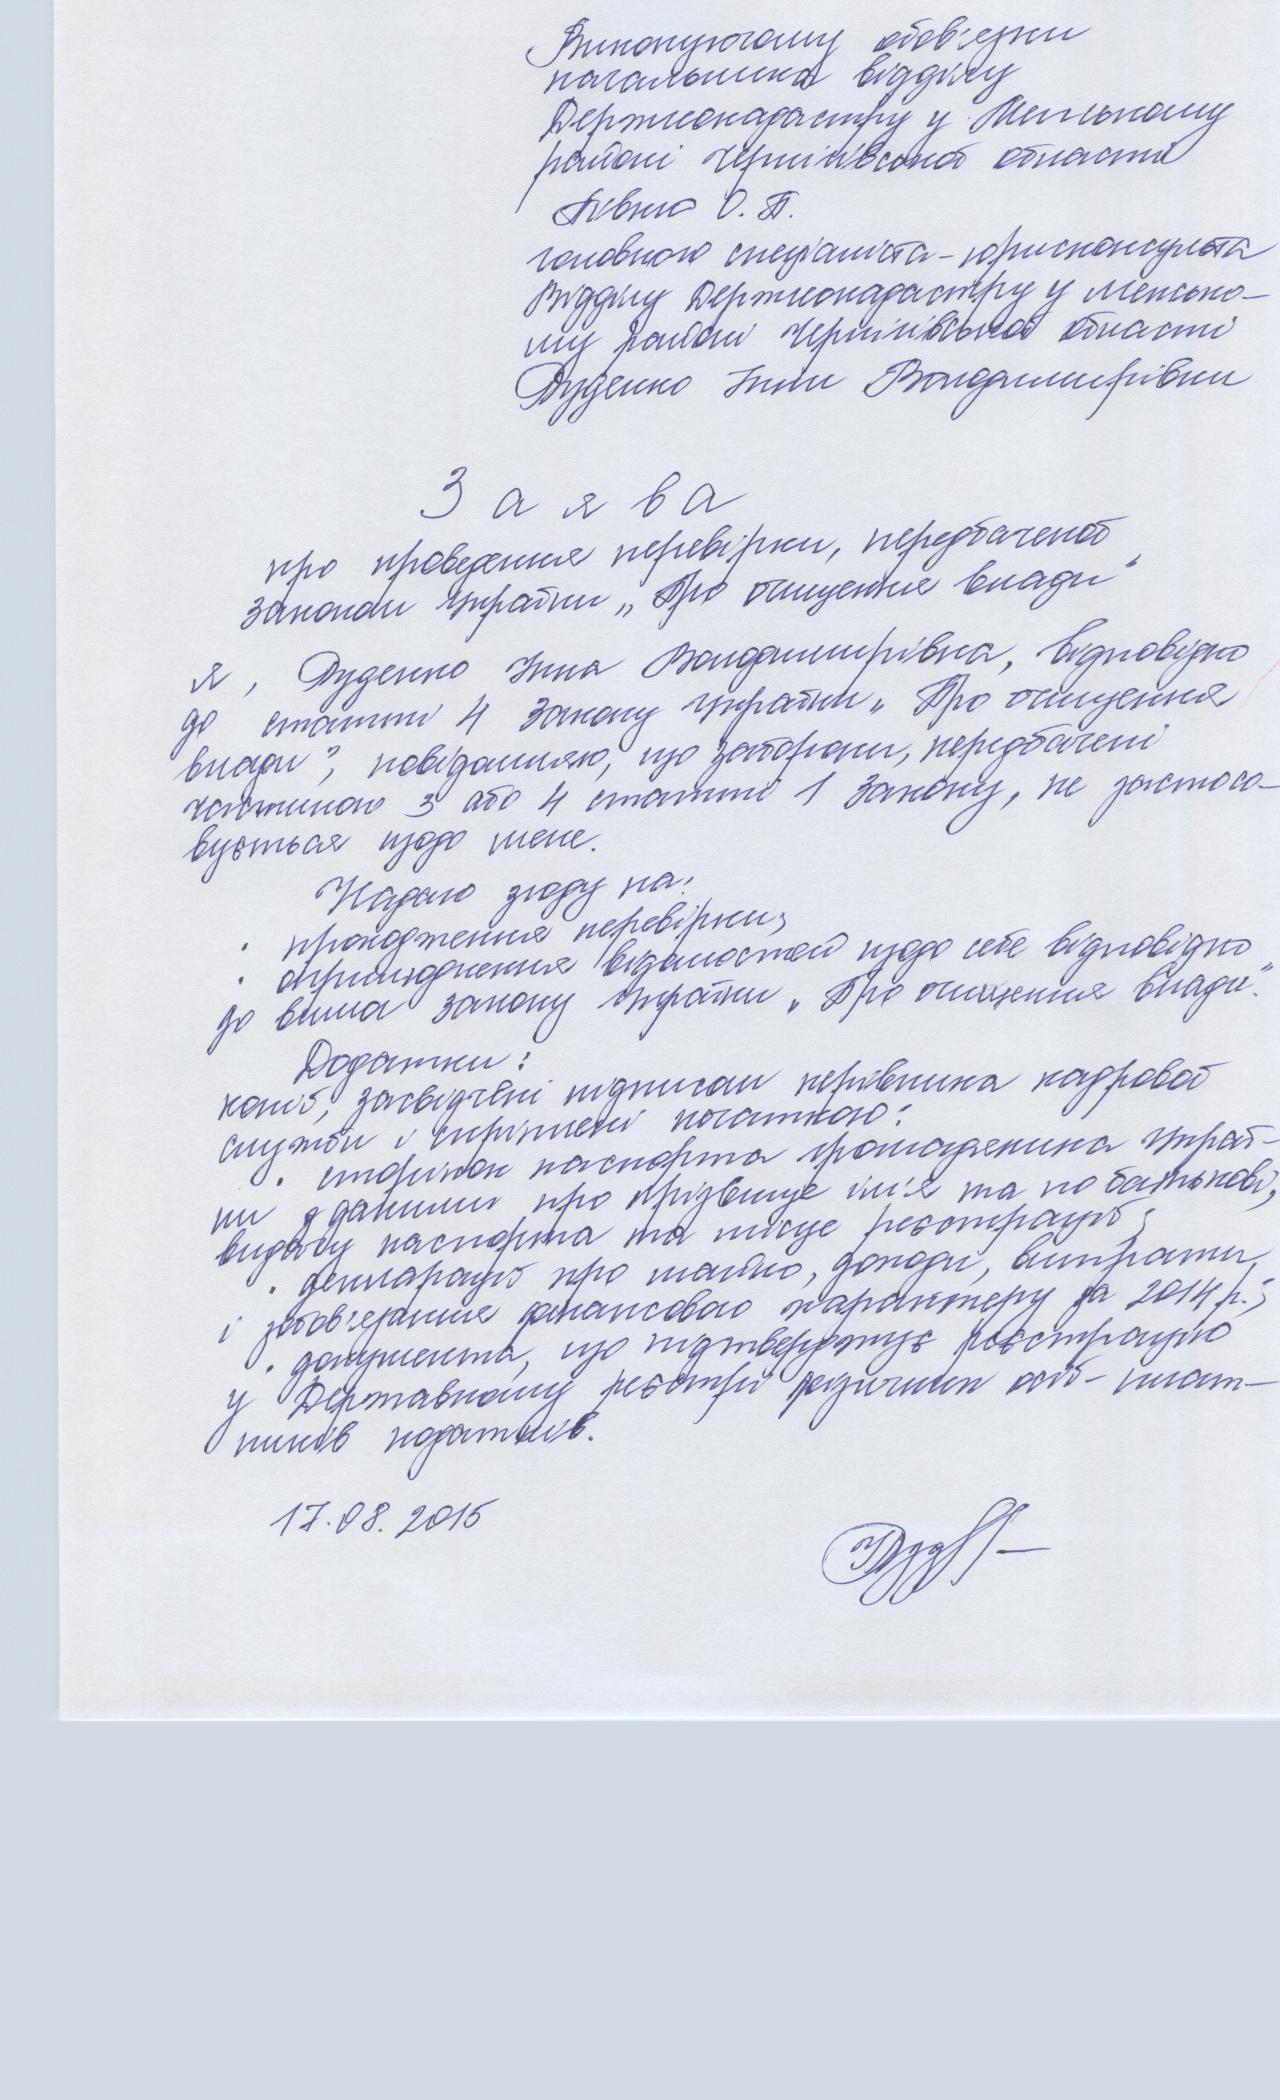 Виконуючому обов'язки
начальника відділу
Держгеокадастру у Менському
районі Чернігівської області
Бівко О. П.
головного спеціаліста-юрисконсульта
Відділу Держгеокадастру у Менсько-
му районі Чернігівської області
Дуденко Інни Володимирівни
Заява
про проведення перевірки, передбаченої
Законом України „Про очищення влади"
Я, Дуденко Інна Володимирівна, відповідно
до статті 4 Закону України „Про очищення
влади", повідомляю, що заборони, передбачені
частиною 3 або 4 статті 1 Закону, не застосо-
вується щодо мене.
Надаю згоду на:
· проходження перевірки;
· оприлюднення відомостей щодо себе відповідно
до вимог Закону України „Про очищення влади".
Додатки:
копії, засвідчені підписом керівника кадрової
служби і скріплені печаткою:
· сторінок паспорта громадянина Украї-
ни з даними про прізвище ім'я та по батькові,
видачу паспорта та місце реєстрації;
· декларації про майно, доходи, витрати,
і зобов'язання фінансового характеру за 2014 р.;
· документа, що підтверджує реєстрацію
у Державному реєстрі фізичних осіб-плат-
ників податків.
17.08.2015